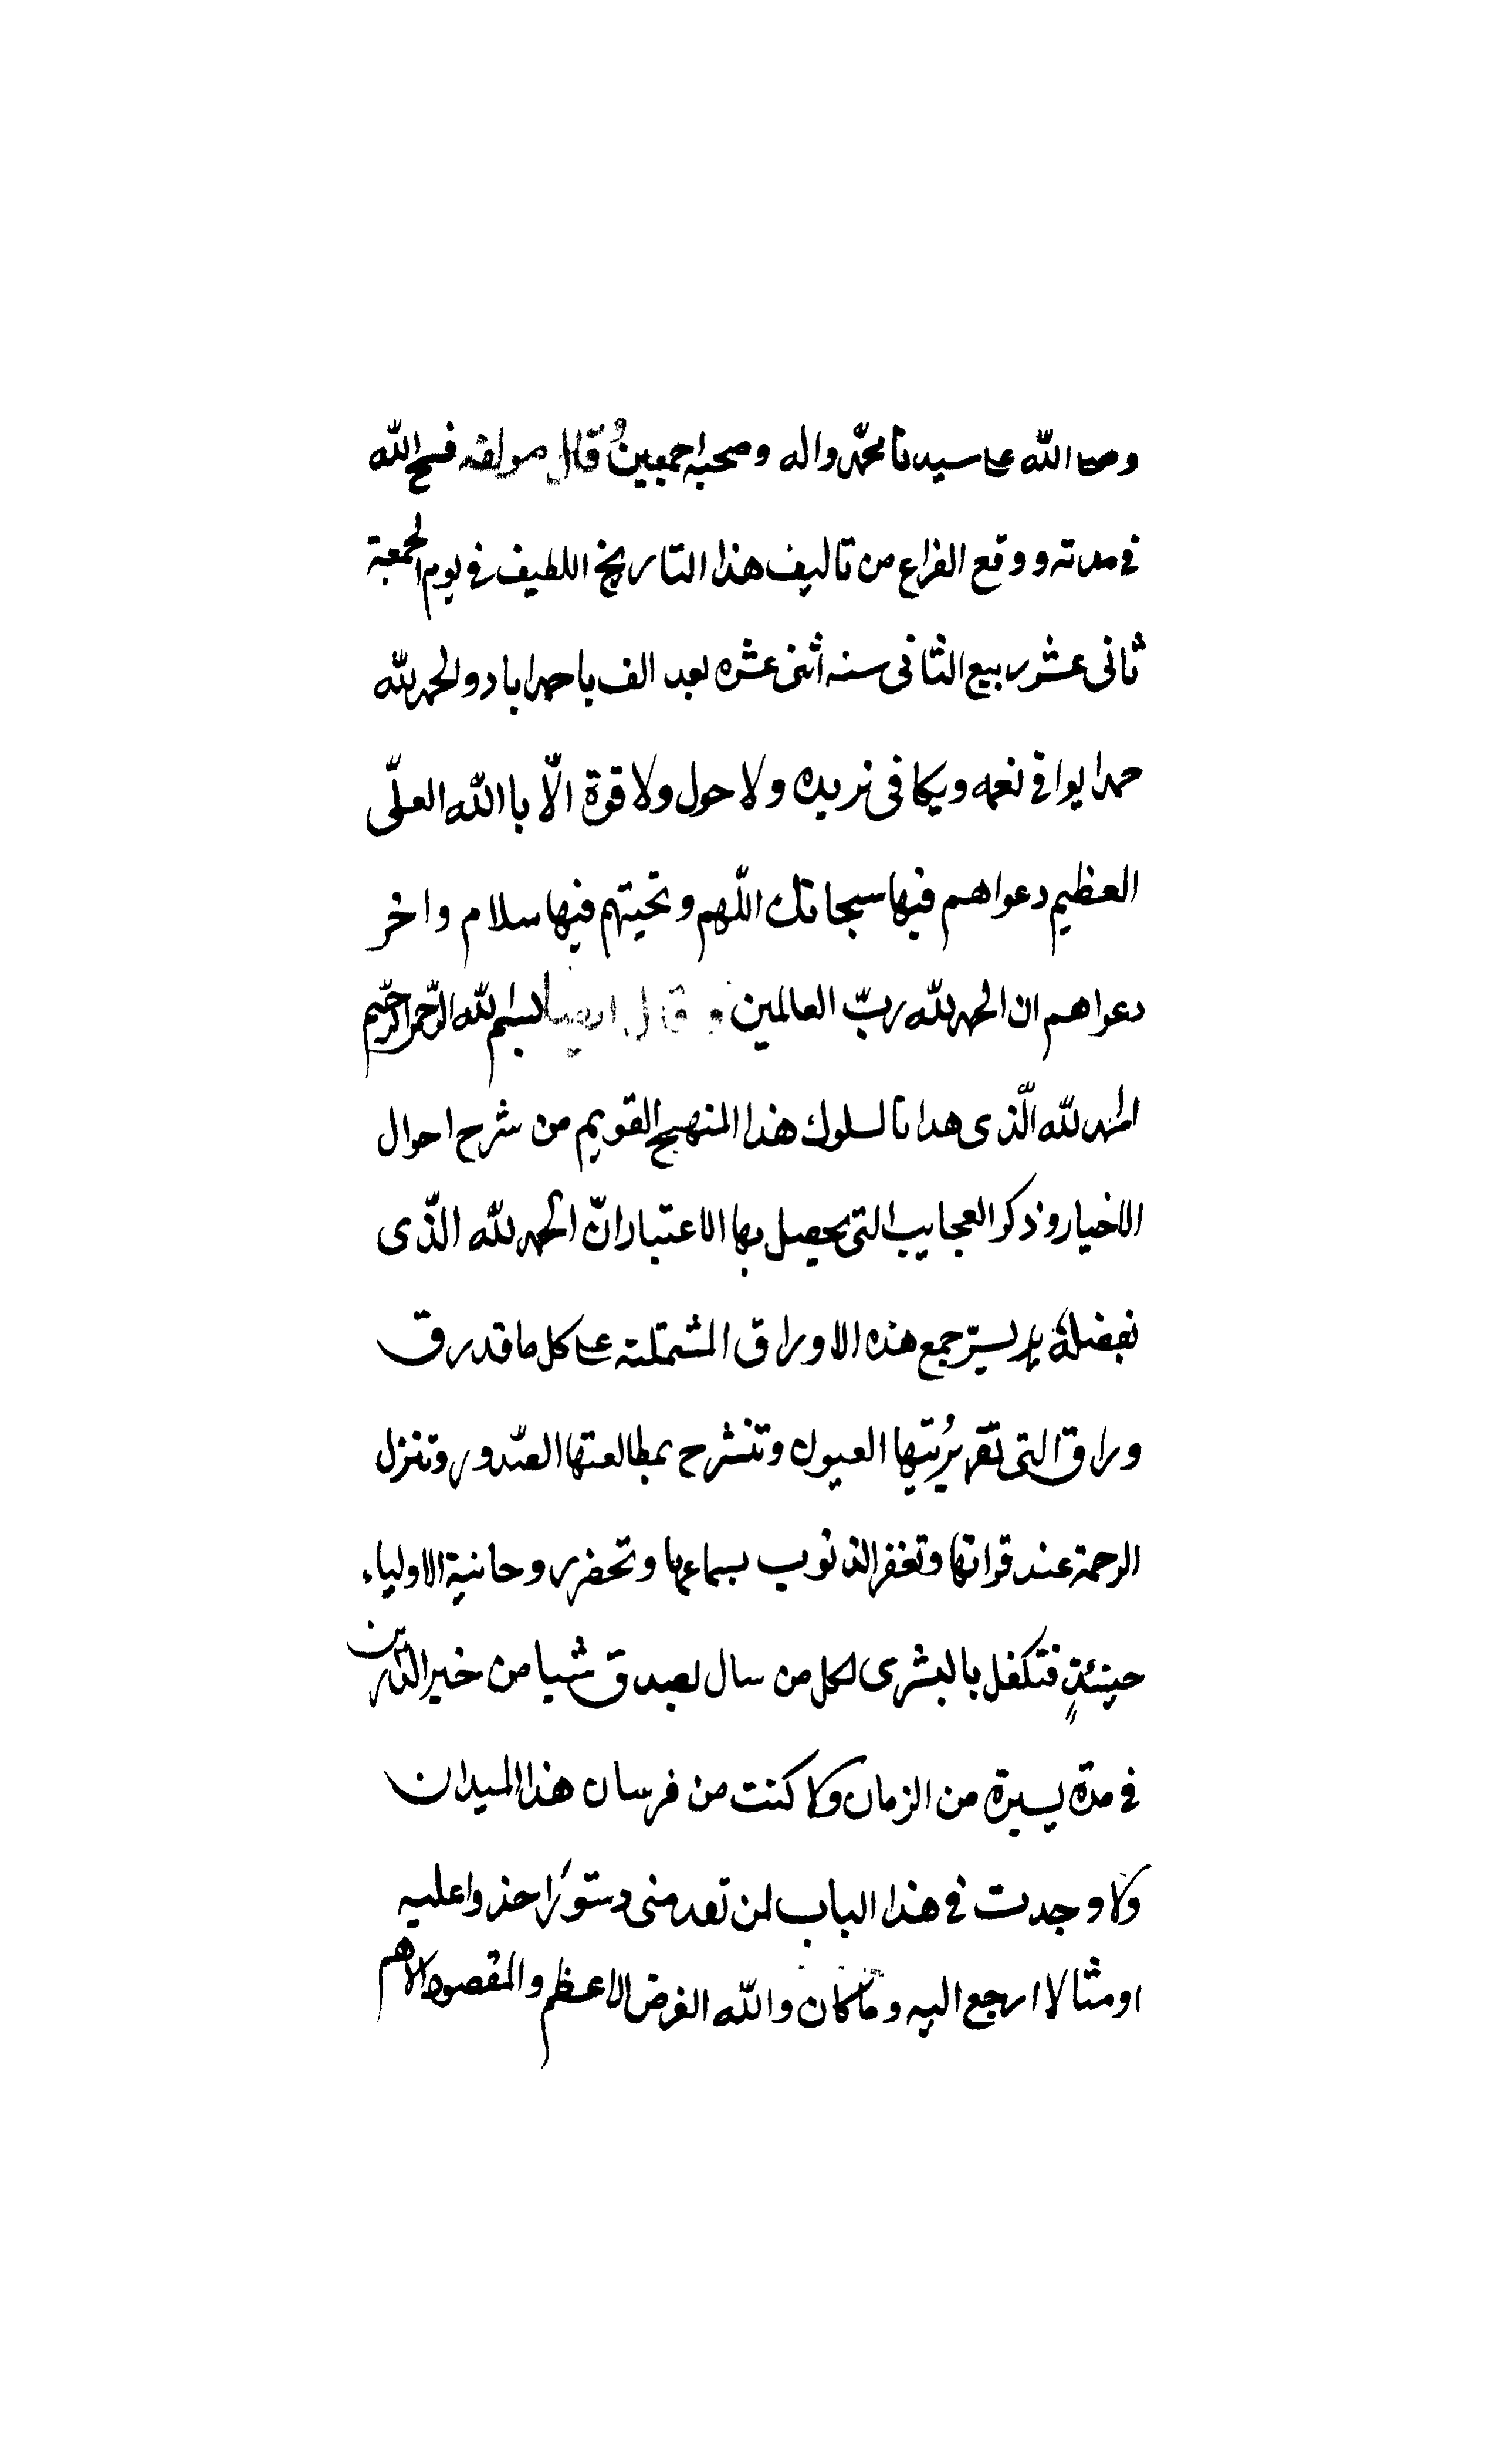 وصلى الله على سيدنا محمّد واله وصحبه اجمعين قال مولفه فسح الله
فى مدته ووقع الفراع من تاليف هذا التاريخ اللطيف فى يوم الجمعة
ثانى عشر ربيع الثانى سنه أثنى عشره بعد الف باحمداباد والحمد لله
حمدا يوافى نعمه ويكافى نريده ولا حول ولا قوة الّا باالله العلّى
العظيم دعواهم فيها سبحانك اللّهم وتحيتهم فيها سلام واخر
دعواهم ان الحمد لله ربّ العالمين و قال ايضا بسم الله الرّحمن الرّحيم
الحمد لله الّذى هدانا لسلوك هذا المنهج القويم من شرح احوال
الاخيار وذكر العجايب التى يحصل بها الاعتبار انّ الحمد لله الذّى
بفضله يسّر جمع هذه الاوراق المشتملة على كل ما قد رق
وراق التى تقر برُيتها العيون وتنشرح بمطالعتها الصّدور وتنزل
الرحمة عند قراتها وتغفر الذنوب بسماعها وتحضر روحانية الاولياء
حينئذٍ فتكفل بالبشرى لكل من سال بصدق شيا من خير الدّارين
فى مدة يسيرة من الزمان ولا كنت من فرسان هذا الميدان
ولا وجدت فى هذا الباب لمن تقدمنى دستورًا احذوا عليه
او مثالا ارجع اليه وما كان والله الغرض الاعظم والمقصود الاهم